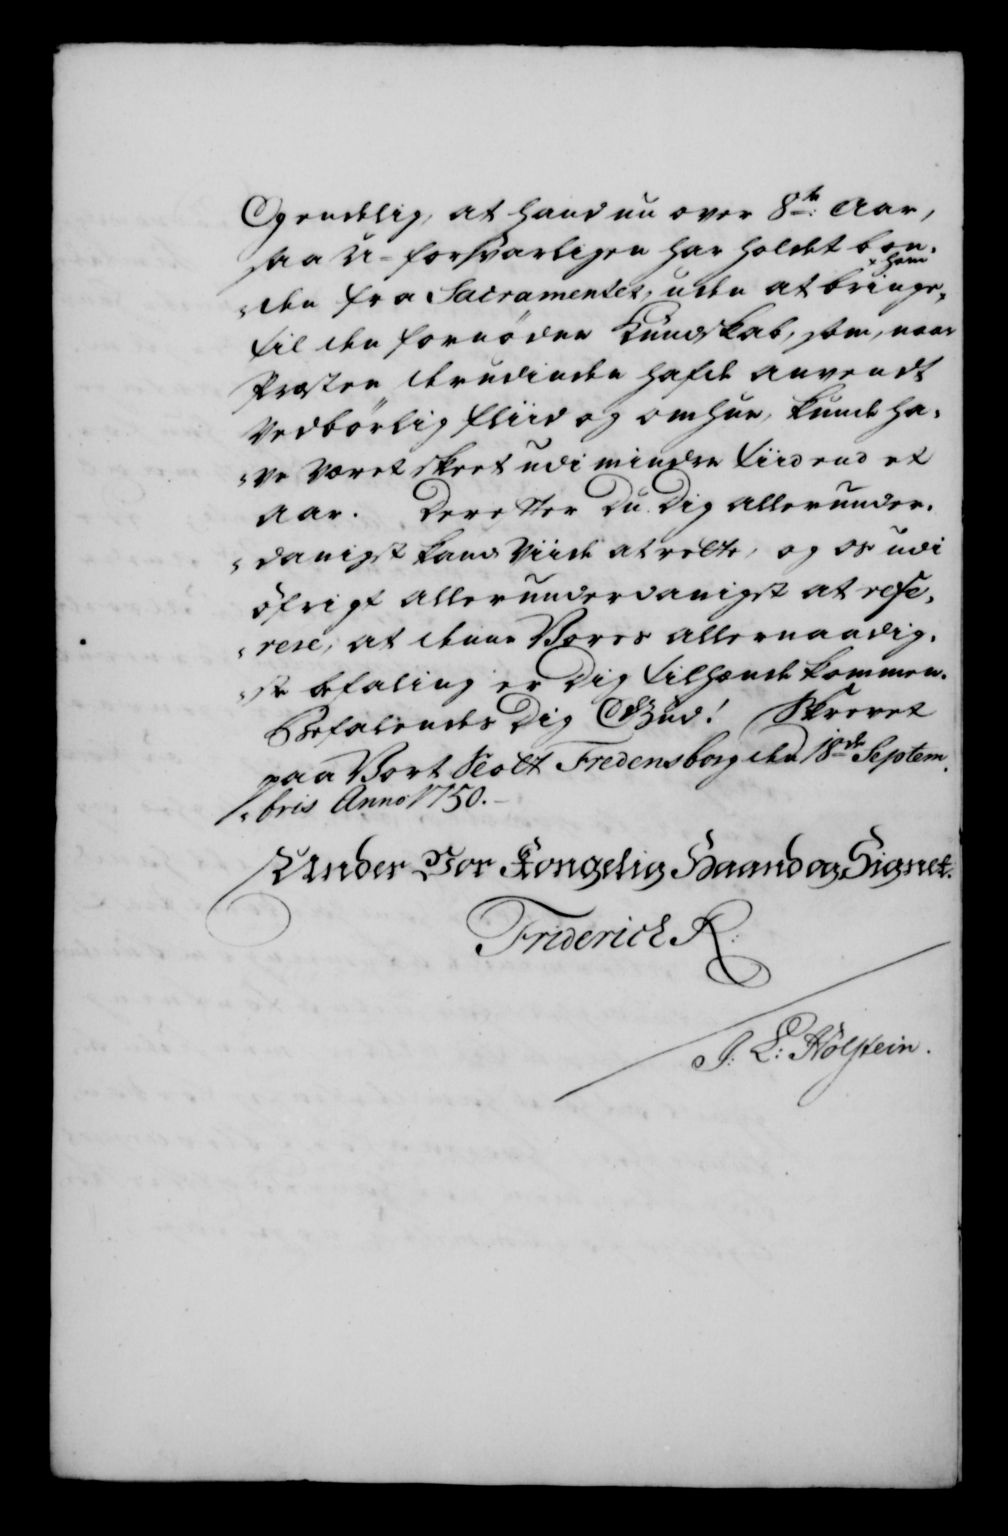 Og endelig, at hand nu over 8te: Aar,
saa U-forsvarligen har holdet bon-
-den fra Sacramentet, uden at bringe ham
til den fornöden Kundskab, som, naar
Præsten derudinden hafde anvendt
Vedbörlig fliid og omhue, kunde ha-
-ve været skeet udi mindre tiid end et
Aar. Derefter Du Dig allerunder-
-danigst kand viide at rette, og os udi
öfrigt allerunderdanigst at refe-
-rere, at denne Vores allernaadig-
-ste befaling er Dig tilhænde kommen.
Befalendes Dig Gud! Skrevet
paa Vort Slott Fredensborg den 18de Septem-
-bris Anno 1750.-
Under Vor Kongelig Haand og Signet.
Friderich R:
J. L: Holstein.